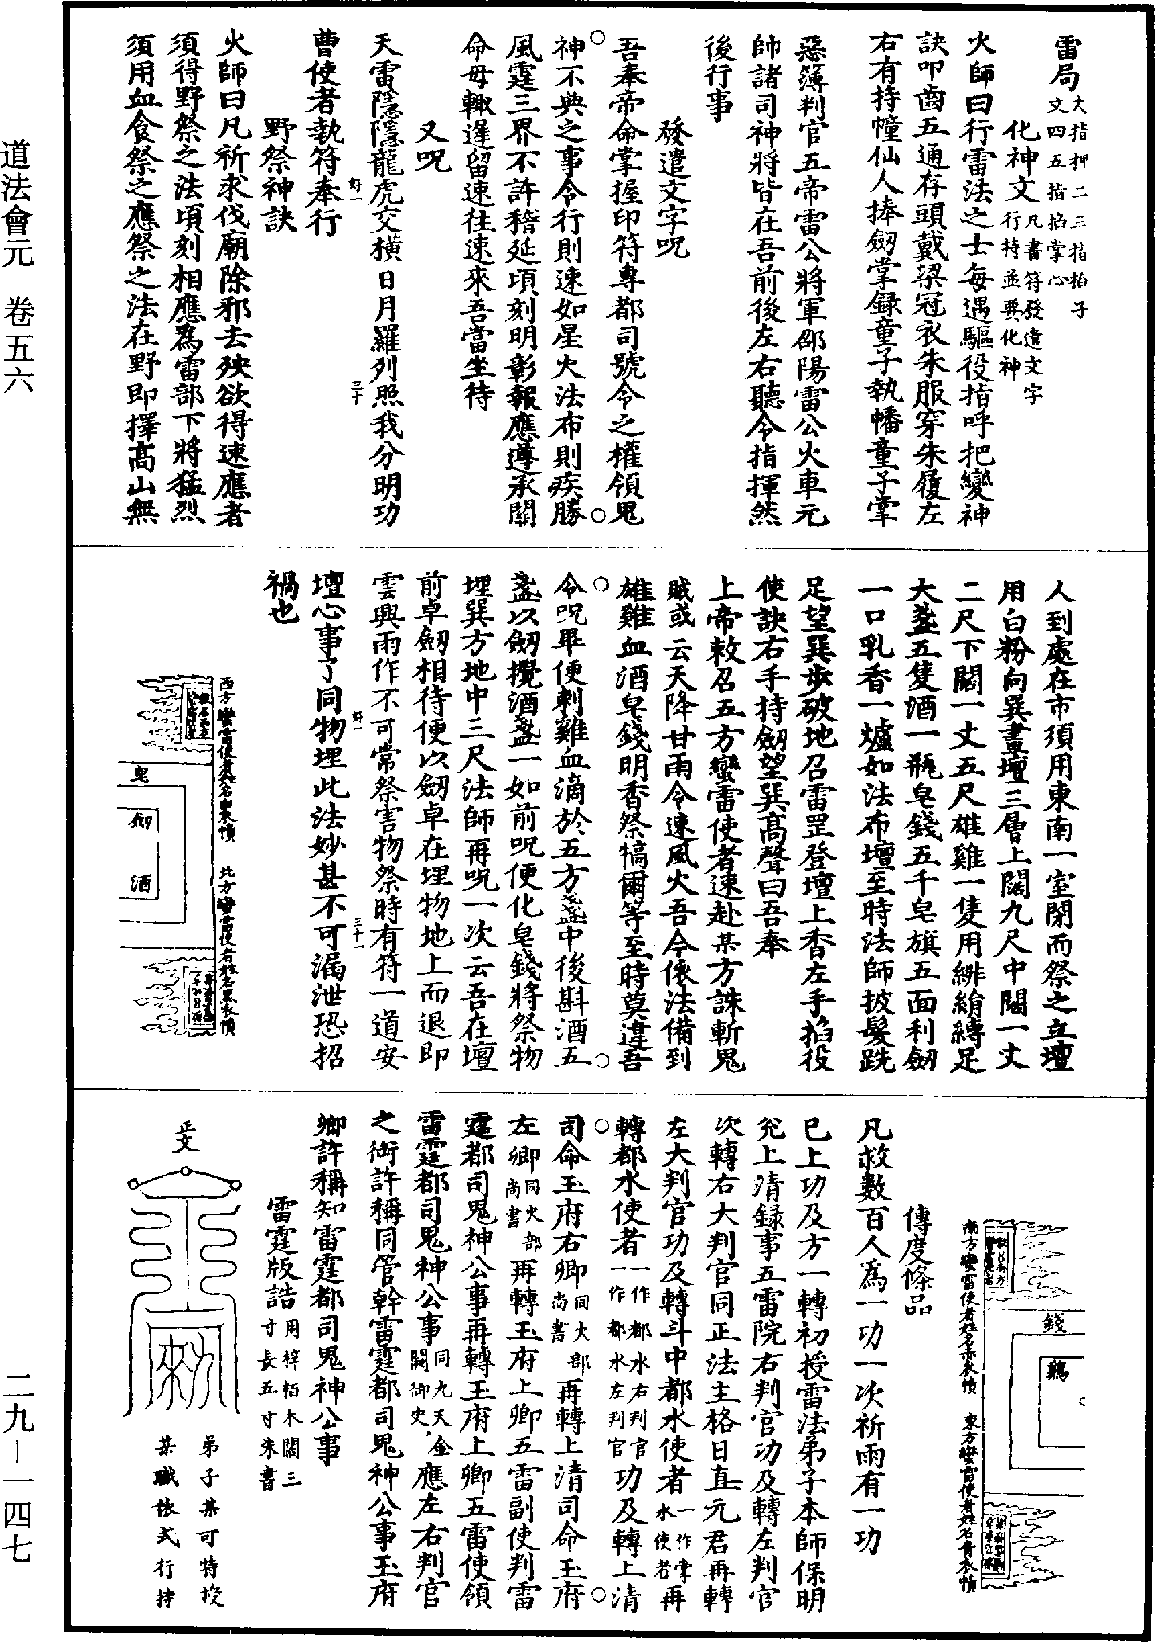 道法會元　卷五六
二九－一四七
雷局大指押二三指掐子文四五指掐掌心
化神文凡書符發遣文字行持並要化神
火師曰行雷法之士每遇驅役指呼把變神
訣叩齒五通存頭戴梁冠衣朱服穿朱履左
右有持幢仙人捧劒掌録童子執幡童子掌
惡簿判官五帝雷公將軍邵陽雷公火車元
帥諸司神將皆在吾前後左右聽令指揮然
後行事
發遣文字呪
吾奉帝命掌握印符專都司號令之權領鬼
神不典之事令行則速如星火法布則疾勝
風霆三界不許稽延頃刻明彰報應遵承關
命毋輙遲留速往速來吾當坐待
又呪
天雷隱隱龍虎交橫日月羅列照我分明功
曹使者執符奉行
野祭神訣
火師曰凡祈求伐廟除邪去殃欲得速應者
須得野祭之法頃刻相應爲雷部下將猛烈
須用血食祭之應祭之法在野即擇高山無
人到處在市須用東南一室閉而祭之立壇
用白粉向巽畫壇三層上闊九尺中闊一丈
二尺下闊一丈五尺雄雞一隻用緋絹縛足
大盞五隻酒一瓶皂錢五千皂旗五面利劒
一口乳香一爐如法布壇至時法師披髮跣
足望巽步破地召雷罡登壇上香左手掐役
使訣右手持劒望巽高聲曰吾奉
上帝敕召五方蠻雷使者速赴某方誅斬鬼
賊或云天降甘雨令速風火吾今依法備到
雄雞血酒皂錢明香祭犒爾等至時莫違吾
令呪畢便刺雞血滴於五方盞中後斟酒五
盞以劒攪酒盞一如前呪便化皂錢將祭物
埋巽方地中三尺法師再呪一次云吾在壇
前卓劒相待便以劒卓在埋物地上而退即
雲興雨作不可常祭害物祭時有符一道安
壇心事了同物埋此法妙甚不可漏泄恐招
禍也
西方蠻雷使者姓名白衣幘　北方蠻雷使者姓名黑衣幘
皂
劒
酒
南方蠻雷使者姓名赤衣幘　東方蠻雷使者姓名青衣幘
錢
雞
傳度條品
凡救數百人爲一功一次祈雨有一功
已上功及方一轉初授雷法弟子本師保明
充上清録事五雷院右判官功及轉左判官
次轉右大判官同正法主格日直元君再轉
左大判官功及轉斗中都水使者一作掌水使者再
轉都水使者一作都水右判官一作都水左判官功及轉上清
司命玉府右卿同火部尚書再轉上清司命玉府
左卿同火部尚書再轉玉府上卿五雷副使判雷
霆都司鬼神公事再轉玉府上卿五雷使領
雷霆都司鬼神公事同九天金闕御史應左右判官
之銜許稱同管幹雷霆都司鬼神公事玉府
卿許稱知雷霆都司鬼神公事
雷霆版誥用梓栢木闊三寸長五寸朱書
正文
弟子某可特授
某職依式行持